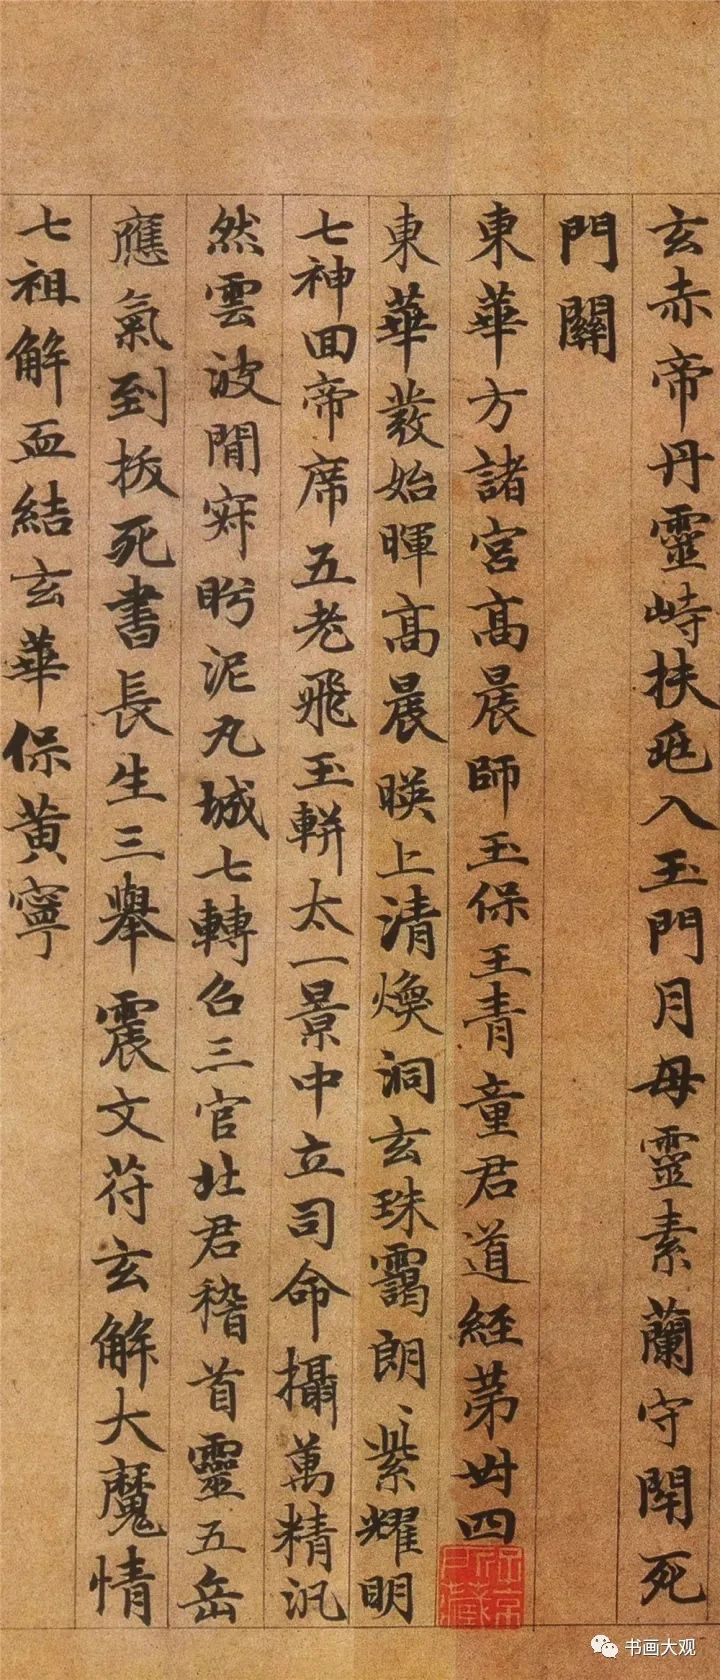 玄赤帝丹靈峙扶兆入玉門月母靈素蘭守閇死
門關
東華方諸宮髙晨師玉保王青童君道經苐卌四
東華蕟始暉髙晨暎上清煥洞玄珠靄朗〻紫耀明
七神回帝席五老飛玉軿太一景中立司命攝萬精汎
然雲波閒宴盻泥丸城七轉召三官北君稽首靈五岳
應氣到拔死書長生三舉震文苻玄解大魔情
七祖解血結玄華保黄寧
书画大观